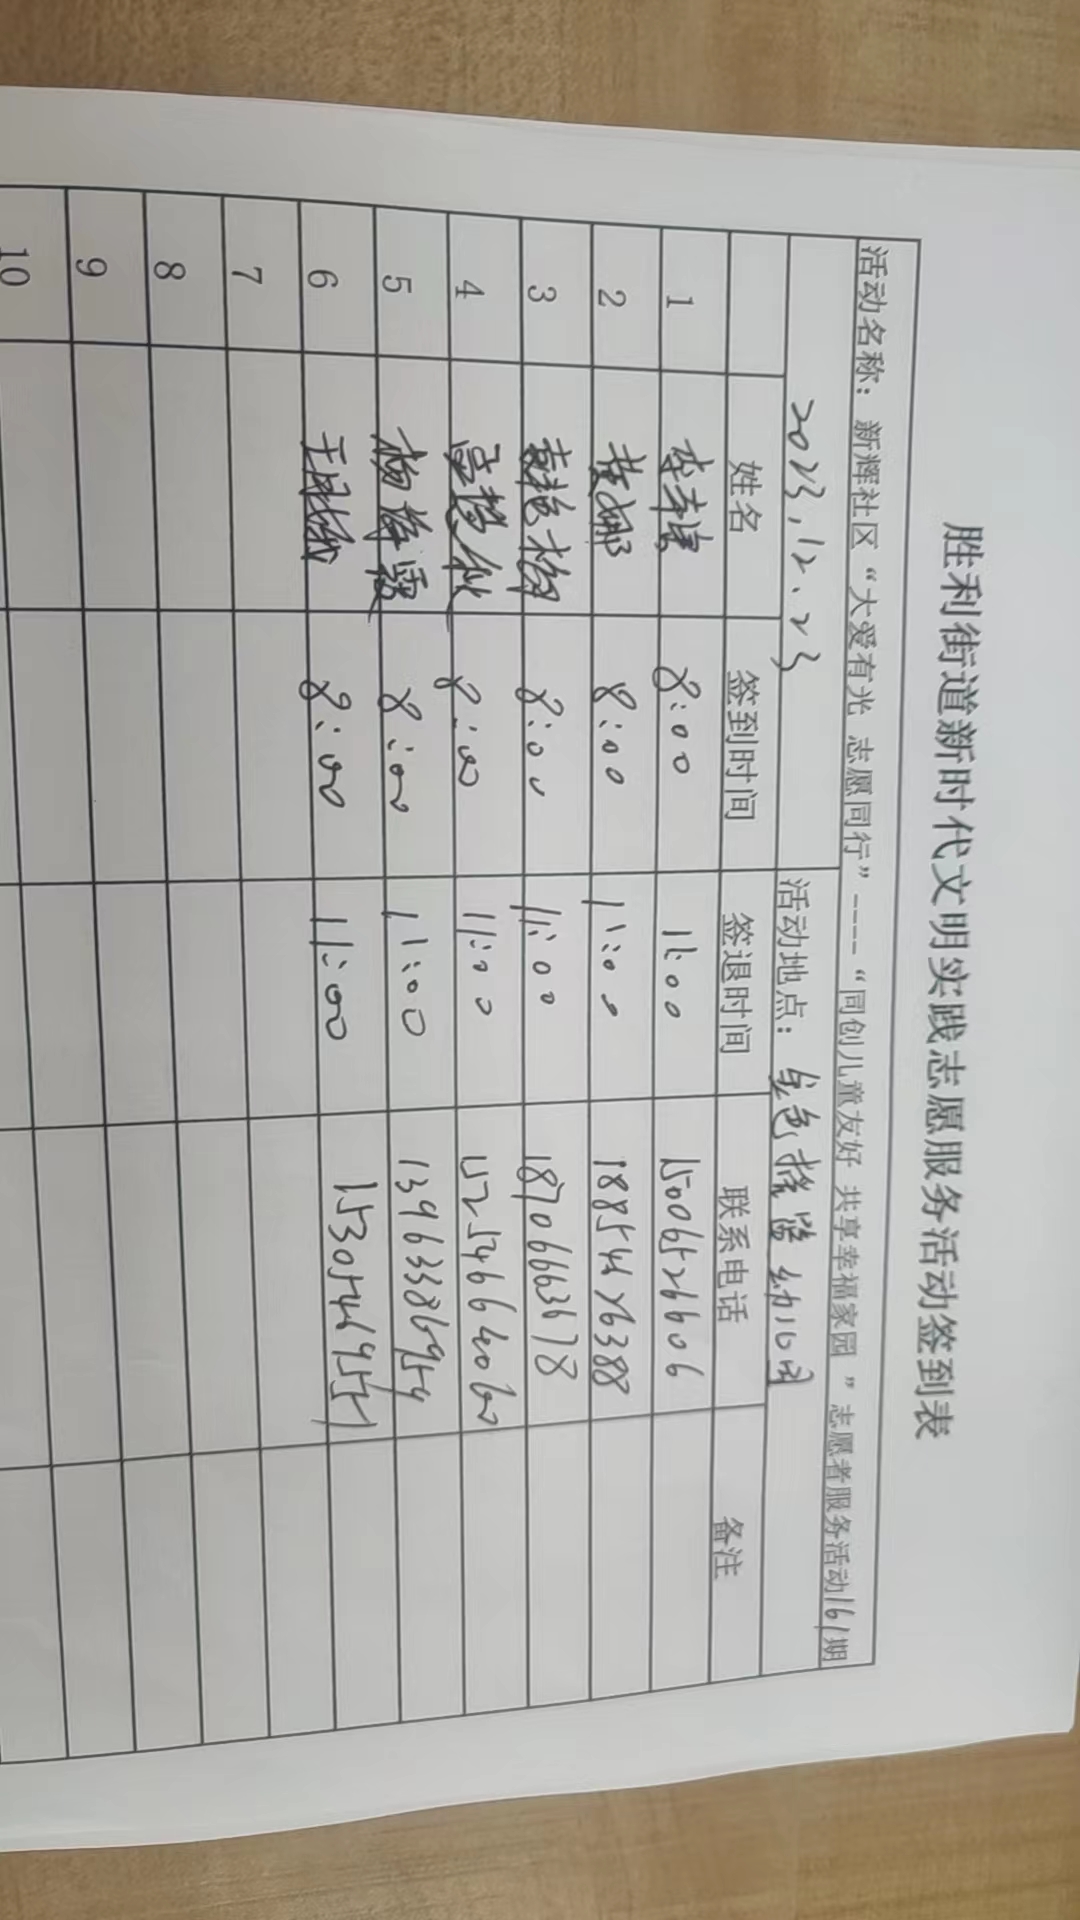 胜利街道新时代文明实践志愿服务活动签到表
活动名称：新辉社区“大爱有光 志愿同行”----“同创儿童友好 共享幸福家园 ”志愿者服务活动161期
2023.12.23 活动地点：金色摇篮幼儿园
姓名 签到时间 签退时间 联系电话 备注
1 8:00 11:00 15006526606
2 黄娜 8:00 11:00
3 袁艳梅 8:00 11:00 18706663678
4 8:00 11:00 15254664060
5 杨海霞 8:00 11:00 13963386954
6 8:00 11:00
7
8
9
10